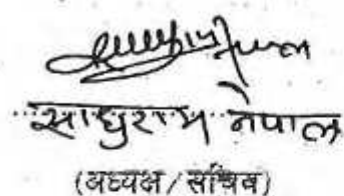 साधुराम नेपाल
(अध्यक्ष/सचिव)